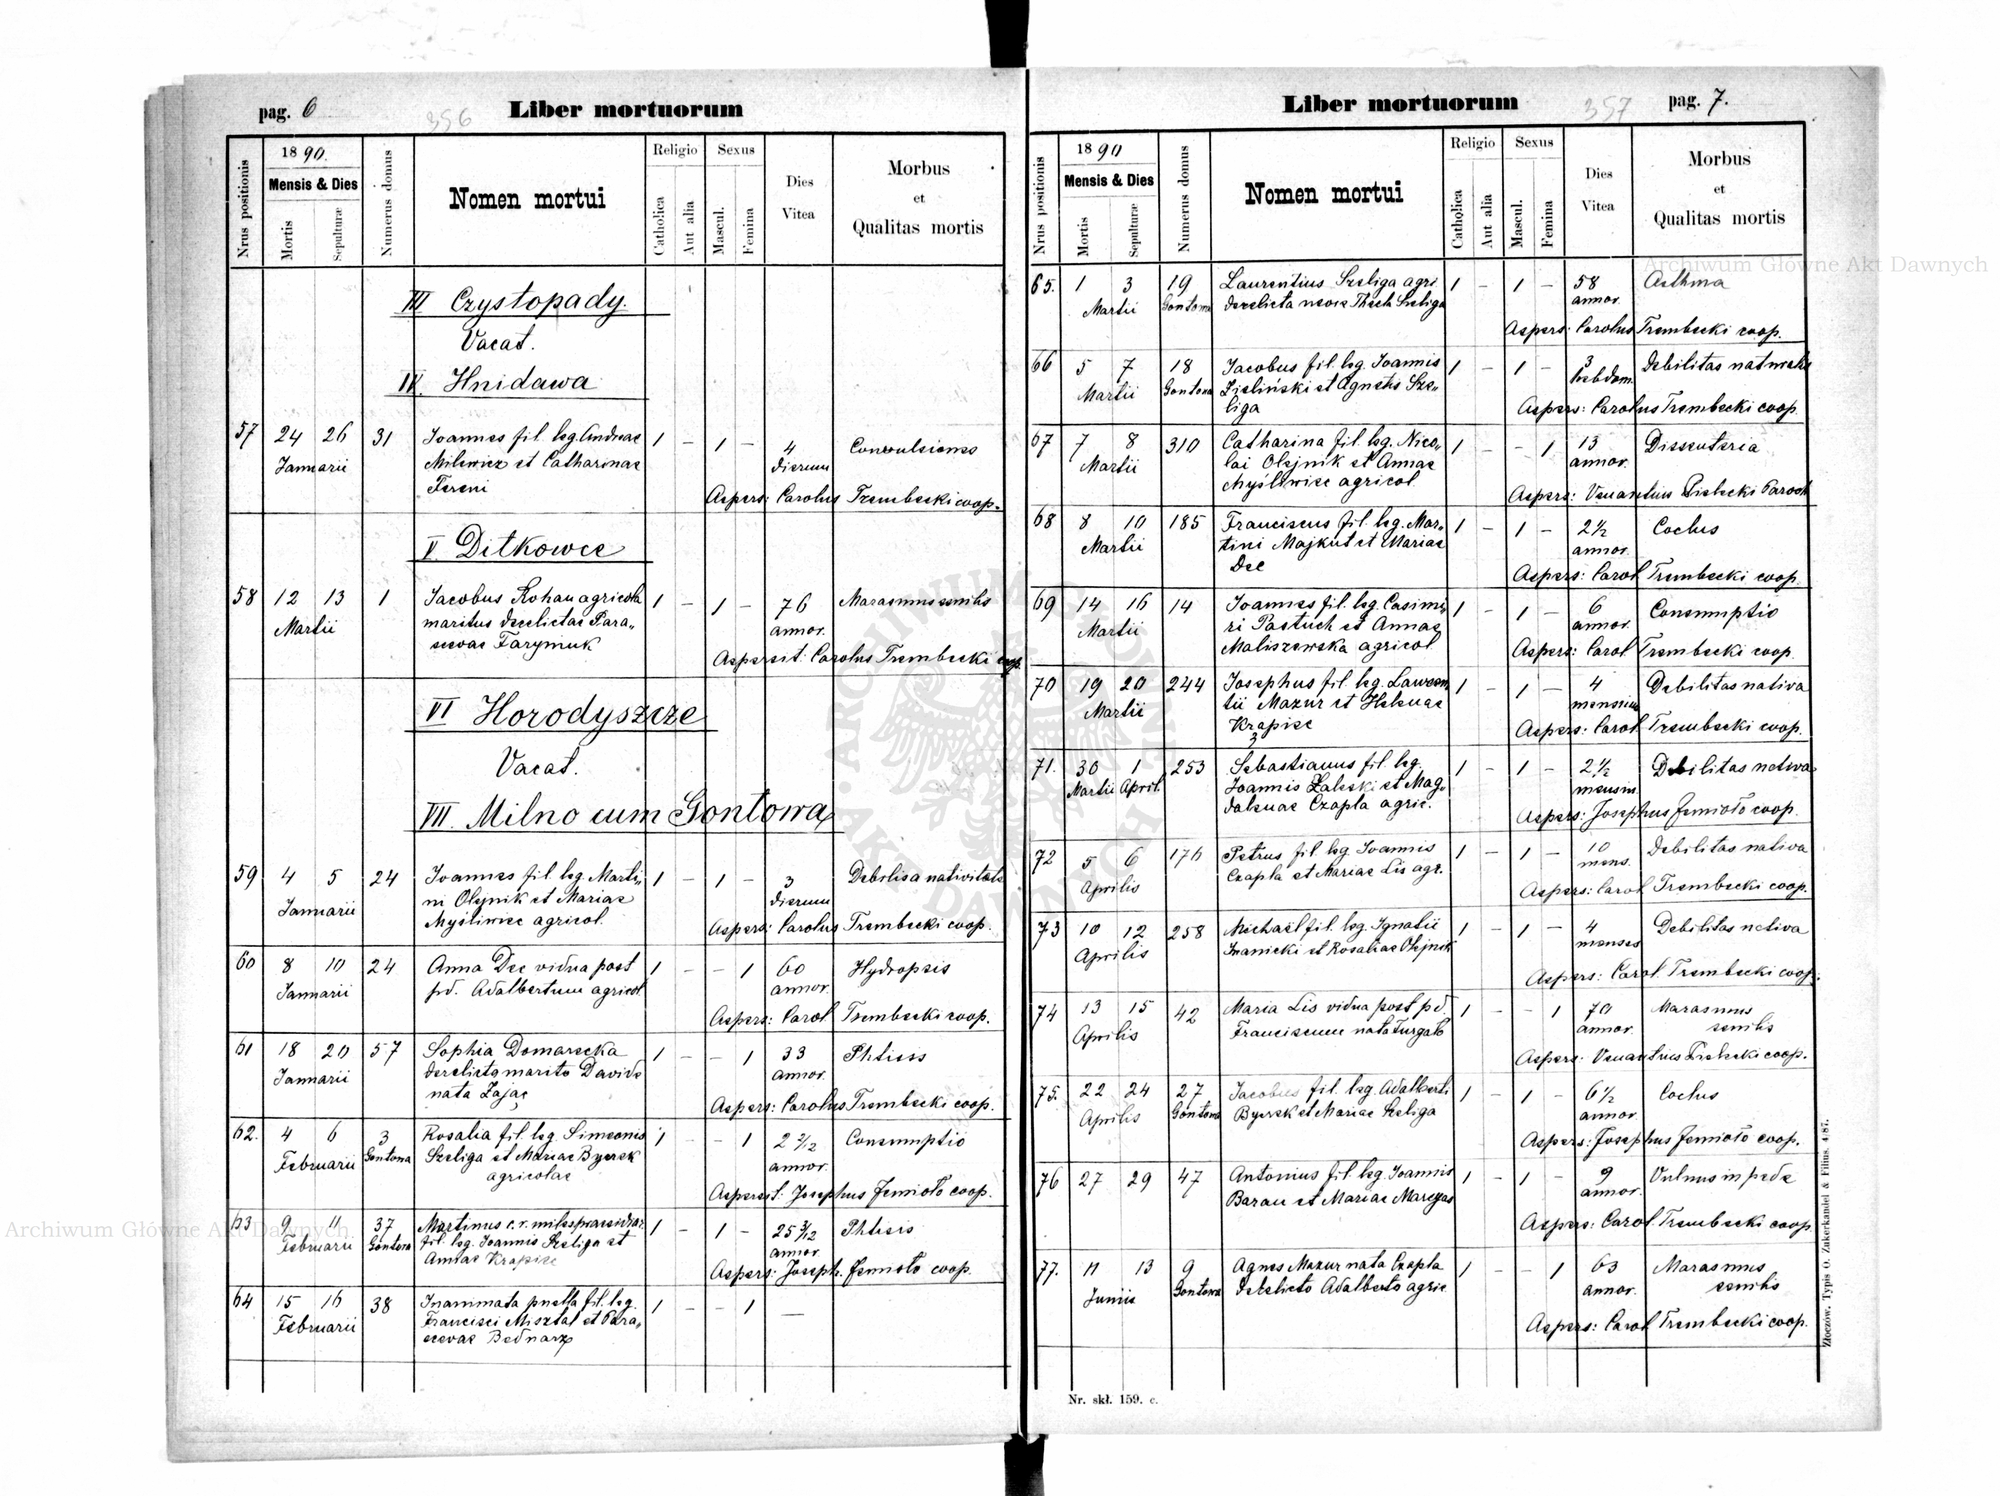 pag. 6
356
Liber mortuorum
Nrus positionis
1890.
Mensis & Dies
Mortis
Sepulturæ
Numerus domus
Nomen mortui
Religio
Catholica
Aut alia
Sexus
Mascul.
Femina
Dies
Vitea
Morbus
et
Qualitas mortis
III Czystopady.
Vacat.
IV. Hnidawa
57 24 26 31 Joannes fil. leg. Andreae 1 - 1 - 4 Convulsiones
Januarii Milewicz et Catharinae dierum
Fereni Aspers: Carolus Trembecki coop.
V Ditkowce
58 12 13 1 Jacobus Kohan agricola 1 - 1 - 76 Marasmus senilis
Martii maritus derelictae Para- annor.
scevae Farymuk Aspersit: Carolus Trembecki coop.
VI Horodyszcze
Vacat.
VII. Milno cum Gontowa
59 4 5 24 Joannes fil. leg. Marti- 1 - 1 - 3 Debilis a nativitate
Januarii ni Olejnik et Mariae dierum
Myśliwiec agricol. Aspers: Carolus Trembecki coop.
60 8 10 24 Anna Dec vidua post 1 - - 1 60 Hydropsis
Januarii pd. Adalbertum agricol. annor.
Aspers: Carol Trembecki coop.
61 18 20 57 Sophia Domarecka 1 - - 1 33 Phtisis
Januarii derelicta marito Davide annor.
nata Zając Aspers: Carolus Trembecki coop.
62. 4 6 3 Rosalia fil. leg. Simeonis 1 - 1 2 2/12 Consumptio
Februarii Gontowa Szeliga et Mariae Byczek annor.
agricolae Aspersit. Josephus Jemioło coop.
63 9 11 37 Martinus c. r. miles 1 - 1 - 25 3/12 Phtisis
Februarii Gontowa fil. leg. Joannis Szeliga et annor.
Annae Krąpiec Aspers: Joseph. Jemioło coop.
64 15 16 38 Inanimata puella fil. leg. 1 - - 1 —
Februarii Francisci Misztal et Para-
scevae Bednarz
Liber mortuorum
357
pag. 7.
Nrus positionis
1890
Mensis & Dies
Mortis
Sepulturæ
Numerus domus
Nomen mortui
Religio
Catholica
Aut alia
Sexus
Mascul.
Femina
Dies
Vitea
Morbus
et
Qualitas mortis
65. 1 3 19 Laurentius Szeliga agri. 1 - 1 - 58 Asthma
Martii Gontowa derelicta uxore Thecla Szeliga annor.
Aspers: Carolus Trembecki coop.
66 5 7 18 Jacobus fil. leg. Joannis 1 - 1 - 3 Debilitas naturalis
Martii Gontowa Zieliński et Agnetis Sze- hebdom.
liga Aspers: Carolus Trembecki coop.
67 7 8 310 Catharina fil. leg. Nico- 1 - - 1 13 Dissenteria
Martii lai Olejnik et Annae annor.
Myśliwiec agricol Aspers: Venantius Paroch
68 8 10 185 Franciscus fil. leg. Mar- 1 - 1 - 2 1/2 Coclus
Martii tini Majkut et Mariae annor.
Dec Aspers: Carol Trembecki coop.
69 14 16 14 Joannes fil. leg. Casimi- 1 - 1 - 6 Consumptio
Martii ri Pastuch et Annae annor.
Maliszewska agricol. Aspers: Carol Trembecki coop.
70 19 20 244 Josephus fil. leg. Lauren- 1 - 1 - 4 Debilitas nativa
Martii tii Mazur et Helenae mensium
Krąpiec Aspers: Carol Trembecki coop.
71. 30 1 253 Sebastianus fil. leg. 1 - 1 - 2 1/2 Debilitas nativa
Martii April. Joannis Zaleski et Mag- mensiu.
dalenae Czapla agric. Aspers: Josephus Jemioło coop.
72 5 6 176 Petrus fil. leg. Joannis 1 - 1 - 10 Debilitas nativa
Aprilis Czapla et Mariae Lis agr. mens.
Aspers: Carol Trembecki coop.
73 10 12 258 Michaël fil. leg. Ignatii 1 - 1 - 4 Debilitas nativa
Aprilis Iwanicki et Rosaliae Olejnik menses
Aspers: Carol. Trembecki coop.
74 13 15 42 Maria Lis vidua post pd. 1 - - 1 70 Marasmus
Aprilis Franciscum nata Furgało annor. senilis
Aspers: Venantius coop.
75. 22 24 27 Jacobus fil. leg. Adalberti 1 - 1 - 6 1/2 Coclus
Aprilis Gontowa Byczek et Mariae Szeliga annor.
Aspers: Josephus Jemioło coop.
76 27 29 47 Antonius fil. leg. Joannis 1 - 1 - 9 Vulnus in pede
Baran et Mariae annor.
Aspers: Carol Trembecki coop
77. 11 13 9 Agnes Mazur nata Czapla 1 - - 1 63 Marasmus
Junii Gontowa derelicto Adalberto agric. annor. senilis
Aspers: Carol Trembecki coop.
Nr. skł. 159. c.
Złoczów. Typis O. Zukerkandel & Filius. 4/87.
Archiwum Główne Akt Dawnych
Archiwum Główne Akt Dawnych
ARCHIWUM GŁÓWNE AKT DAWNYCH